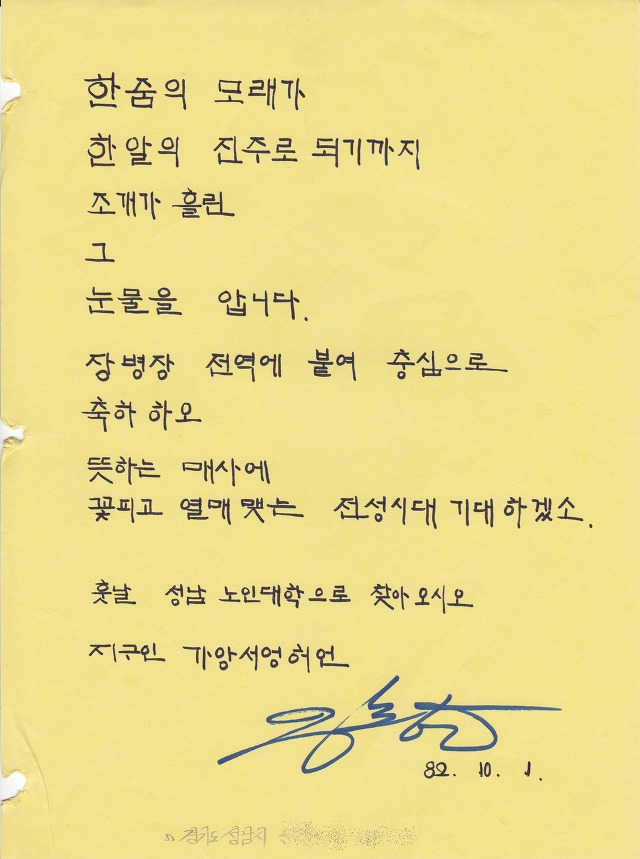 한줌의 모래가
한알의 진주로 되기까지
조개가 흘린
그
눈물을 압니다.
장병장 전역에 붙여 충심으로
축하 하오
뜻하는 매사에
꽃피고 열매 맺는 전성시대 기대 하겠소.
훗날 성남 노인대학으로 찾아 오시오
지구인 가앙서영허언
82. 10. 1.
경기도 성남시